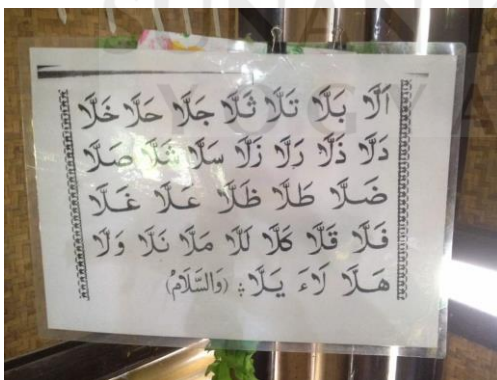 SUNAN K
YOGYA
اَلَّا بَلَّا تَلَّا ثَلَّا جَلَّا حَلَّا خَلَّا
دَلَّا ذَلَّا رَلَّا زَلَّا سَلَّا شَلَّا صَلَّا
ضَلَّا طَلَّا ظَلَّا عَلَّا غَلَّا
فَلَّا قَلَّا كَلَّا لَلَّا مَلَّا نَلَّا وَلَّا
هَلَّا لَاءَ يَلَّا ؞ (وَالسَّلَامُ)